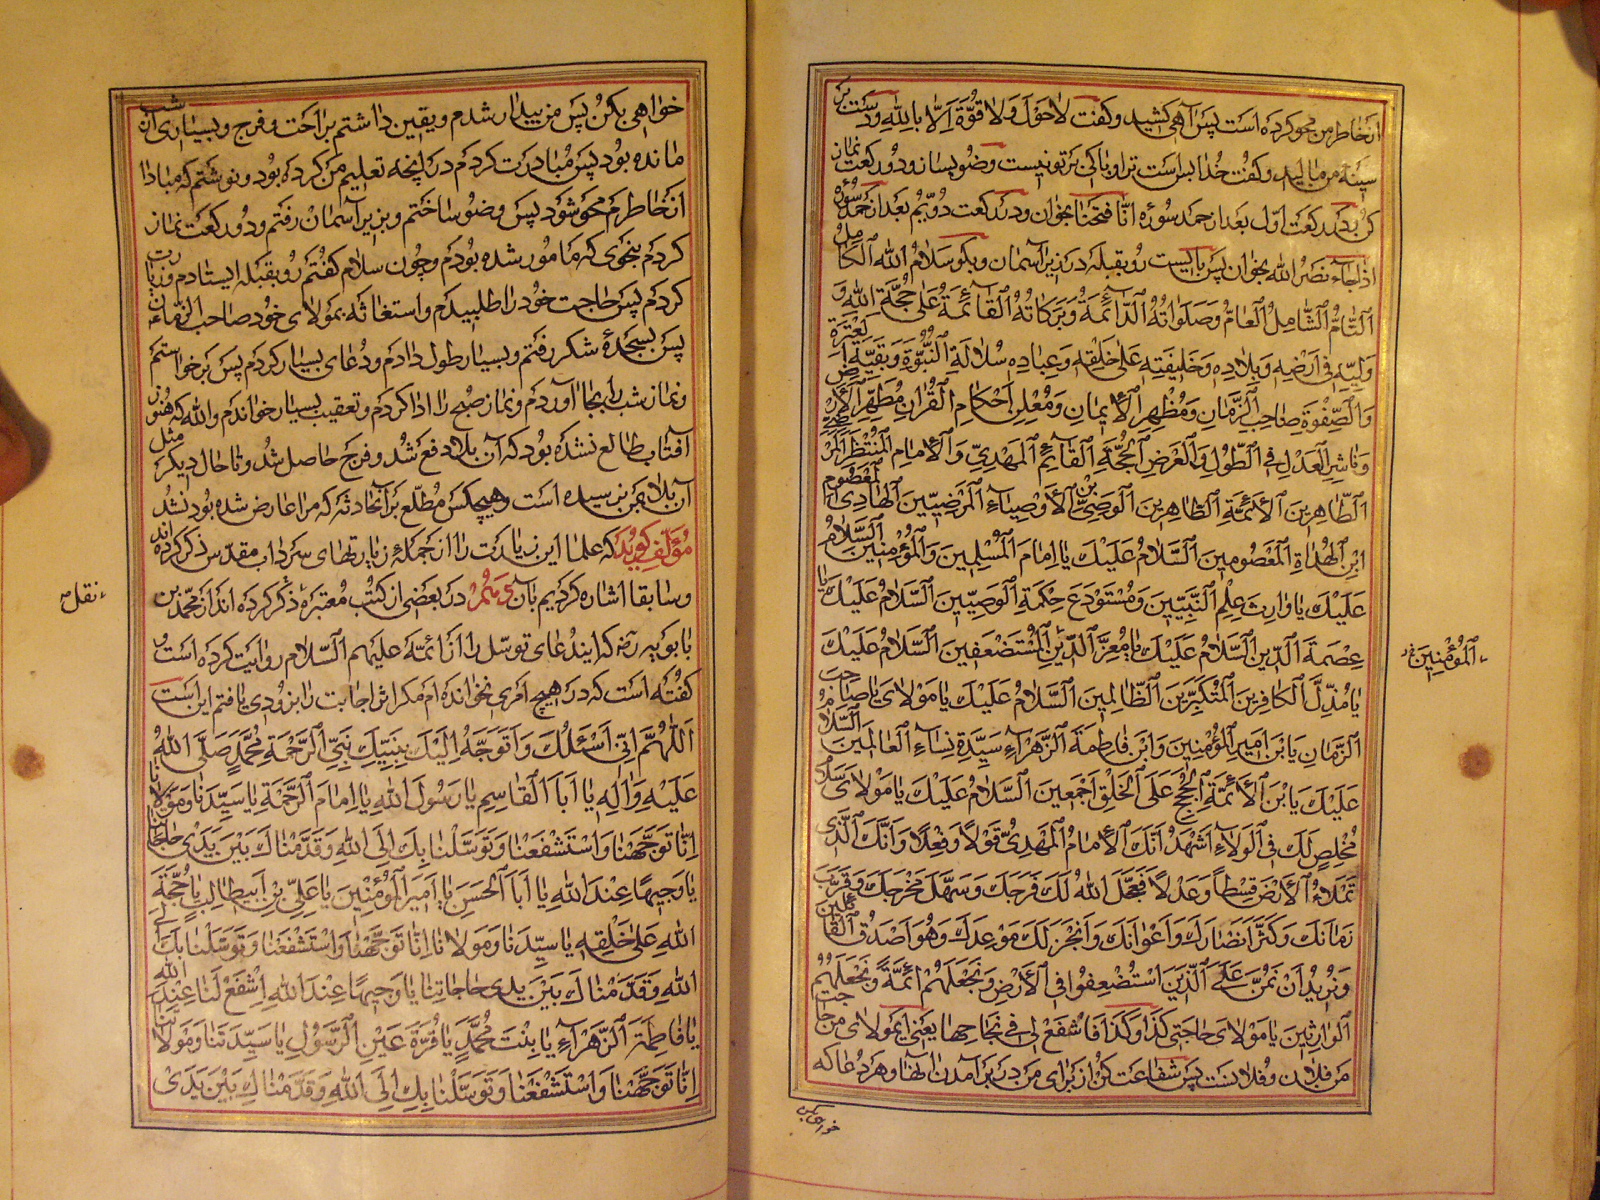 از خاطر من محو کرده است پس آهی کشید و گفت لا حَوْلَ وَلا قُوَّةَ اِلّا بِاللهِ و دست بر
سینهٔ من مالید و گفت خدا بس است ترا و باکی بر تو نیست وضو بساز و دو رکعت نماز
کن بدین در رکعت اوّل بعد از حمد سوره انّا فتحنا بخوان و در رکعت دوّیم بعد از حمد سوره
اذا جاءَ نصر الله بخوان پس بایست رو بقبله در زیر آسمان و بگو سَلامُ اللهِ الکامِلُ
التّامُّ الشّامِلُ العامُّ وَصَلَواتُهُ الدّائِمَةُ وَبَرَکاتُهُ القائِمَةُ عَلی حُجَّةِ اللهِ وَ
وَلِیِّهِ فی اَرْضِهِ وَبِلادِهِ وَخَلیفَتِهِ عَلی خَلْقِهِ وَعِبادِهِ سُلالَةِ النُّبُوَّةِ وَبَقِیَّةِ العِتْرَةِ
وَالصِّفْوَةِ صاحِبِ الزَّمانِ وَمُظْهِرِ الاْیمانِ وَمُعْلِنِ اَحْکامِ القُرْانِ مُطَهِّرِ الاَرْضِ
وَناشِرِ العَدْلِ فِی الطُّولِ وَالعَرْضِ الحُجَّةِ القائِمِ المَهْدِیِّ وَالاِمامِ المُنْتَظَرِ المَرْضِیِّ
الطّاهِرینَ الاَئِمَّةِ الطّاهِرینَ الوَصِیِّ بْنِ الاَوْصِیاءِ المَرْضِیّینَ الهادِی المَعْصُومِ
ابْنِ الهُداةِ المَعْصُومینَ السَّلامُ عَلَیْكَ یا اِمامَ المُسْلِمینَ وَالمُؤْمِنینَ السَّلامُ
عَلَیْكَ یا وارِثَ عِلْمِ النَّبِیّینَ وَمُسْتَوْدَعَ حِکْمَةِ الوَصِیّینَ السَّلامُ عَلَیْكَ یا
عِصْمَةَ الدّینِ السَّلامُ عَلَیْكَ یا مُعِزَّ المُسْتَضْعَفینَ السَّلامُ عَلَیْكَ
المُؤْمِنینَ
یا مُذِلَّ الکافِرینَ المُتَکَبِّرینَ الظّالِمینَ السَّلامُ عَلَیْكَ یا مَوْلایَ یا صاحِبَ
الزَّمانِ یَا بْنَ اَمیرِ المُؤْمِنینَ وَابْنَ فاطِمَةَ الزَّهْراءِ سَیِّدَةِ نِساءِ العالَمینَ السَّلامُ
عَلَیْكَ یَا بْنَ الاَئِمَّةِ الحُجَجِ عَلَی الخَلْقِ اَجْمَعینَ السَّلامُ عَلَیْكَ یا مَوْلایَ سَلامَ
مُخْلِصٍ لَكَ فِی الوَلاءِ اَشْهَدُ اَنَّكَ الاِمامُ المَهْدِیُّ قَوْلاً وَفِعْلاً وَاَنَّكَ الَّذی
تَمْلاَءُ الاَرْضَ قِسْطاً وَعَدْلاً فَعَجَّلَ اللهُ لَكَ فَرَجَكَ وَسَهَّلَ مَخْرَجَكَ وَقَرَّبَ
زَمانَكَ وَکَثَّرَ اَنْصارَكَ وَاَعْوانَكَ وَاَنْجَزَ لَكَ مَوْعِدَكَ وَهُوَ اَصْدَقُ القائِلینَ
وَنُریدُ اَنْ نَمُنَّ عَلَی الَّذینَ اسْتُضْعِفُوا فِی الاَرْضِ وَنَجْعَلَهُمْ اَئِمَّةً وَنَجْعَلَهُمُ
الوارِثینَ یا مَوْلایَ حاجَتی کَذا وَکَذا فَاشْفَعْ لی فی نَجاحِها یعنی ای مولای من حاجت
من فلان و فلانست پس شفاعت کن از برای من در برآمدن آنها و هر دعا که
خواهی بکن
خواهی بکن پس من بیدار شدم و یقین داشتم براحت و فرج و بسیاری از شب
مانده بود پس مبادرت کردم در آنچه تعلیم من کرده بود و نوشتم که مبادا
از خاطرم محو شود پس وضو ساختم و بزیر آسمان رفتم و دو رکعت نماز
کردم بنحوی که مامور شده بودم و چون سلام گفتم رو بقبله ایستادم و زیارت
کردم پس حاجت خود را طلبیدم و استغاثه بمولای خود صاحب الزمان
پس بسجدهٔ شکر رفتم و بسیار طول دادم و دعای بسیار کردم پس برخواستم
و نماز شب را بجا آوردم و نماز صبح را ادا کردم و تعقیب بسیار خواندم والله که هنوز
آفتاب طالع نشده بود که آن بلا دفع شد و فرج حاصل شد و تا حال دیگر مثل
آن بلا بمن نرسیده است و هیچکس مطّلع بر آنحادثه که مرا عارض شده بود نشد
مؤلّف گوید که علما این زیارت را از جمله زیارتهای سرداب مقدّس ذکر کرده‌اند
و سابقا اشاره کردیم بآن در بعضی از کتب معتبره ذکر کرده‌اند از محمّد بن
نقل
بابویه ره که ایندعای توسّل را از ائمّه علیهم السّلام روایت کرده است و
گفته است که در هیچ امری نخوانده‌ام مگر اثر اجابت را بزودی یافتم این است
اَللّهُمَّ اِنّی اَسْئَلُكَ وَاَتَوَجَّهُ اِلَیْكَ بِنَبِیِّكَ نَبِیِّ الرَّحْمَةِ مُحَمَّدٍ صَلَّی اللهُ
عَلَیْهِ وَالِهِ یا اَبَا القاسِمِ یا رَسُولَ اللهِ یا اِمامَ الرَّحْمَةِ یا سَیِّدَنا وَمَوْلانا
اِنّا تَوَجَّهْنا وَاسْتَشْفَعْنا وَتَوَسَّلْنا بِكَ اِلَی اللهِ وَقَدَّمْناكَ بَیْنَ یَدَیْ حاجاتِنا
یا وَجیهاً عِنْدَ اللهِ یا اَبَا الحَسَنِ یا اَمیرَ المُؤْمِنینَ یا عَلِیَّ بْنَ اَبیطالِبٍ یا حُجَّةَ
اللهِ عَلی خَلْقِهِ یا سَیِّدَنا وَمَولانا اِنّا تَوَجَّهْنا وَاسْتَشْفَعْنا وَتَوَسَّلْنا بِكَ اِلَی
اللهِ وَقَدَّمْناكَ بَیْنَ یَدَی حاجاتِنا یا وَجیهاً عِنْدَ اللهِ اِشْفَعْ لَنا عِنْدَ اللهِ
یا فاطِمَةَ الزَّهْراءِ یا بِنْتَ مُحَمَّدٍ یا قُرَّةَ عَیْنِ الرَّسُولِ یا سَیِّدَتَنا وَمَوْلاتَنا
اِنّا تَوَجَّهْنا وَاسْتَشْفَعْنا وَتَوَسَّلْنا بِكِ اِلَی اللهِ وَقَدَّمْناكِ بَیْنَ یَدَیْ